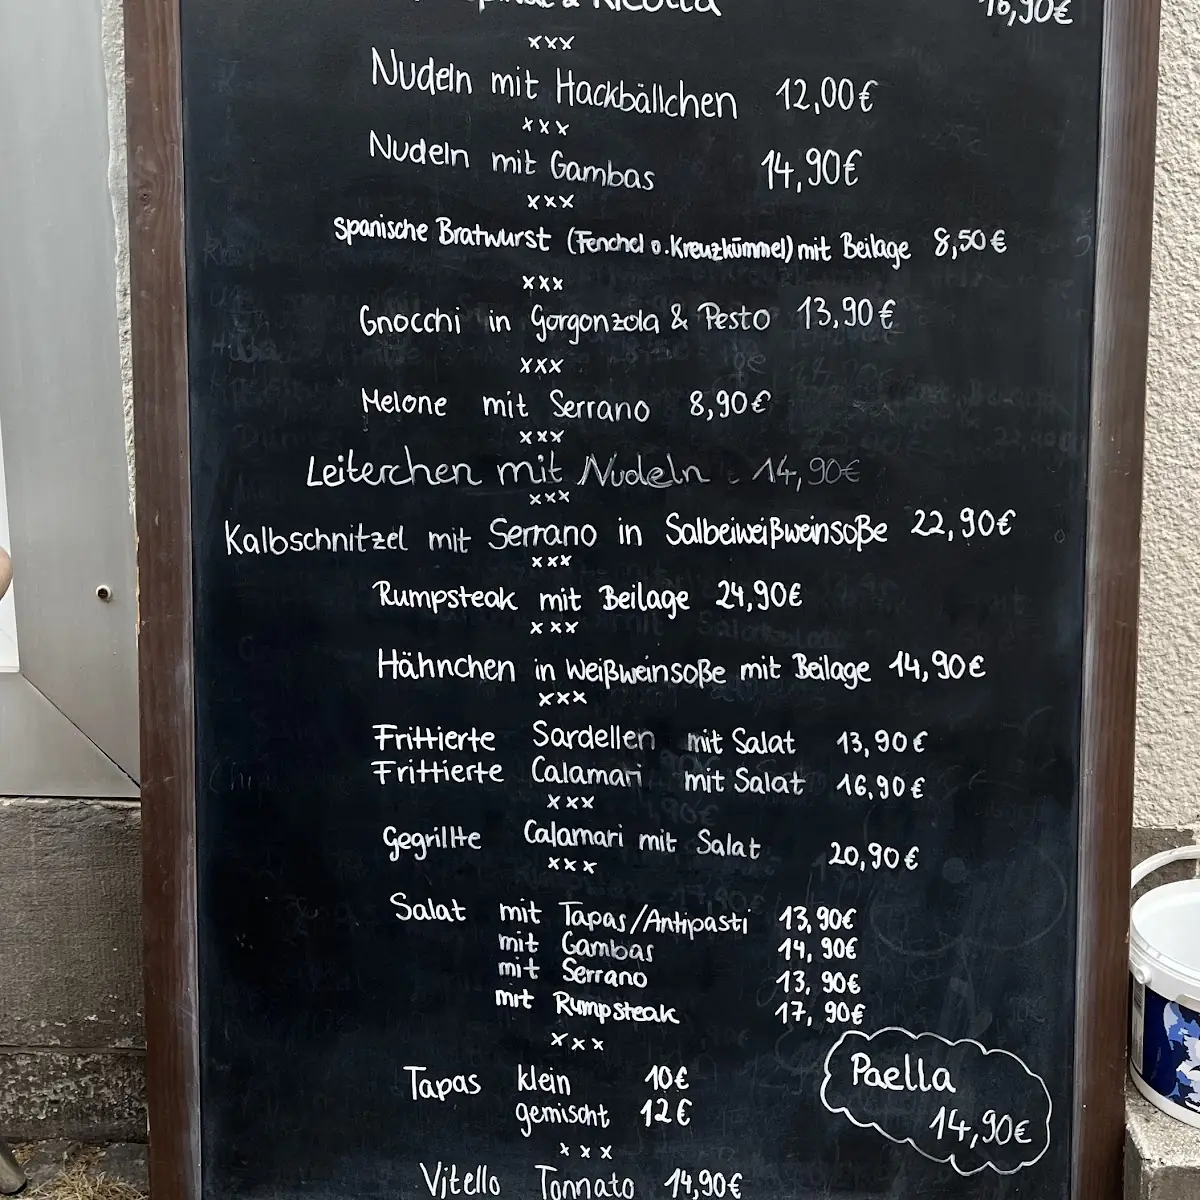 & Ricotta 16,90€
xxx
Nudeln mit Hackbällchen 12,00€
xxx
Nudeln mit Gambas 14,90€
xxx
spanische Bratwurst (Fenchel o. Kreuzkümmel) mit Beilage 8,50€
xxx
Gnocchi in Gorgonzola & Pesto 13,90€
xxx
Melone mit Serrano 8,90€
xxx
Leiterchen mit Nudeln 14,90€
xxx
Kalbschnitzel mit Serrano in Salbeiweißweinsoße 22,90€
xxx
Rumpsteak mit Beilage 24,90€
xxx
Hähnchen in Weißweinsoße mit Beilage 14,90€
xxx
Frittierte Sardellen mit Salat 13,90€
Frittierte Calamari mit Salat 16,90€
xxx
Gegrillte Calamari mit Salat 20,90€
xxx
Salat mit Tapas/Antipasti 13,90€
mit Gambas 14,90€
mit Serrano 13,90€
mit Rumpsteak 17,90€
xxx
Tapas klein 10€
gemischt 12€
xxx
Vitello Tonnato 14,90€
Paella
14,90€